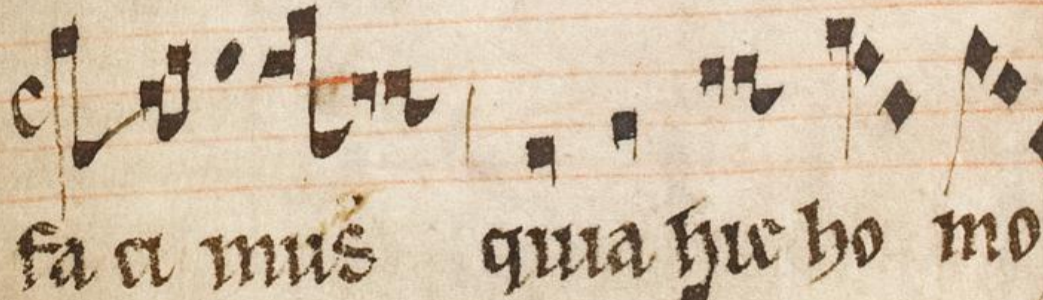 fa ci mus quia hic ho mo